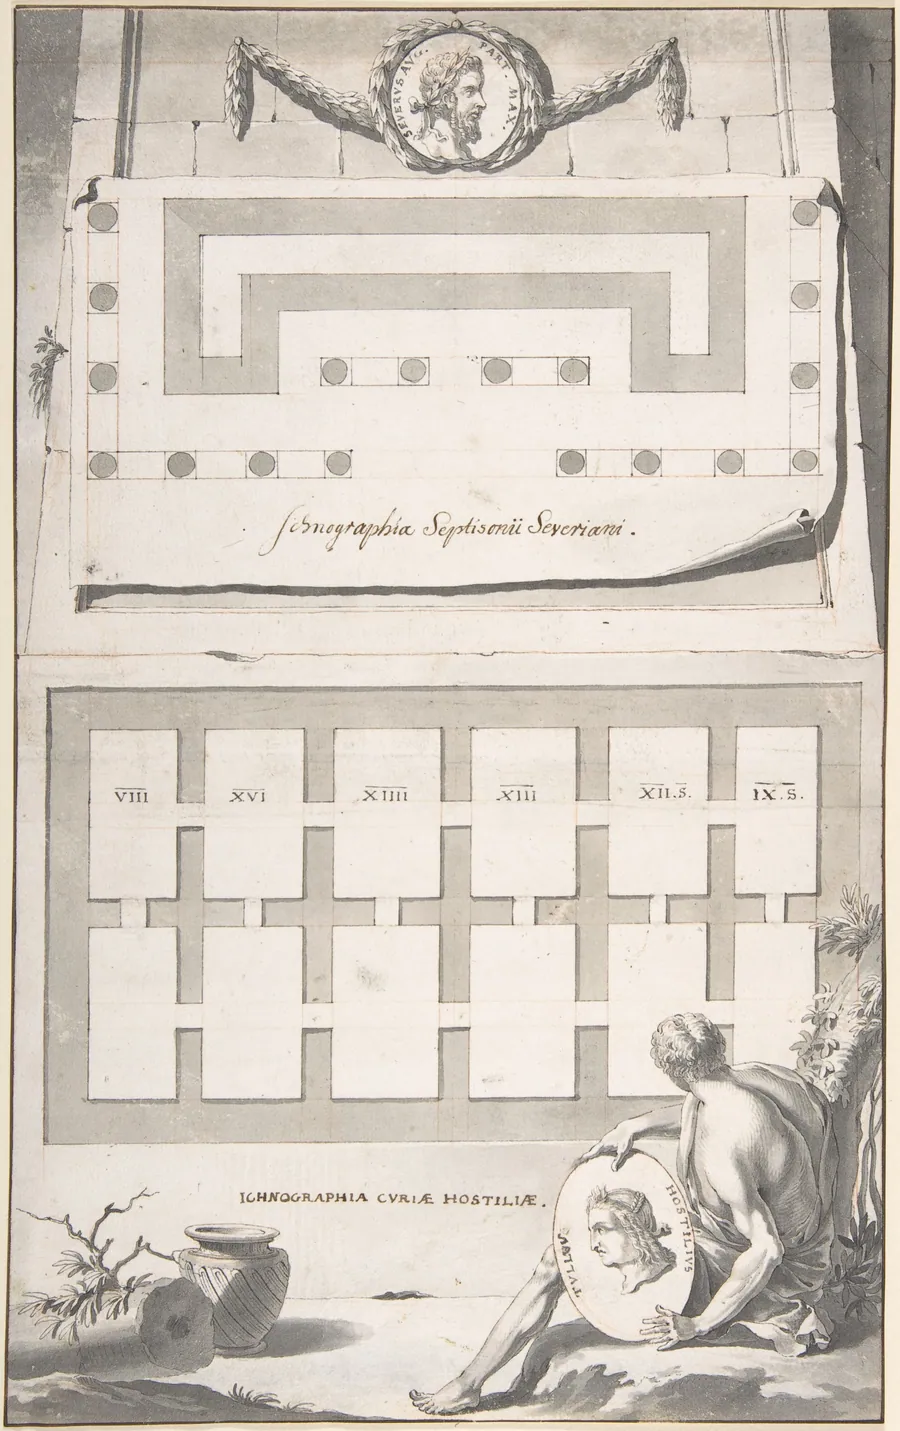 SEVERVS. AVG. PART. MAX.
Ichnographia Septisonii Severiani.
VIII XVI XIIII XIII XII.S. IX.S.
ICHNOGRAPHIA CVRIÆ HOSTILIÆ.
TVLLVS HOSTILIVS